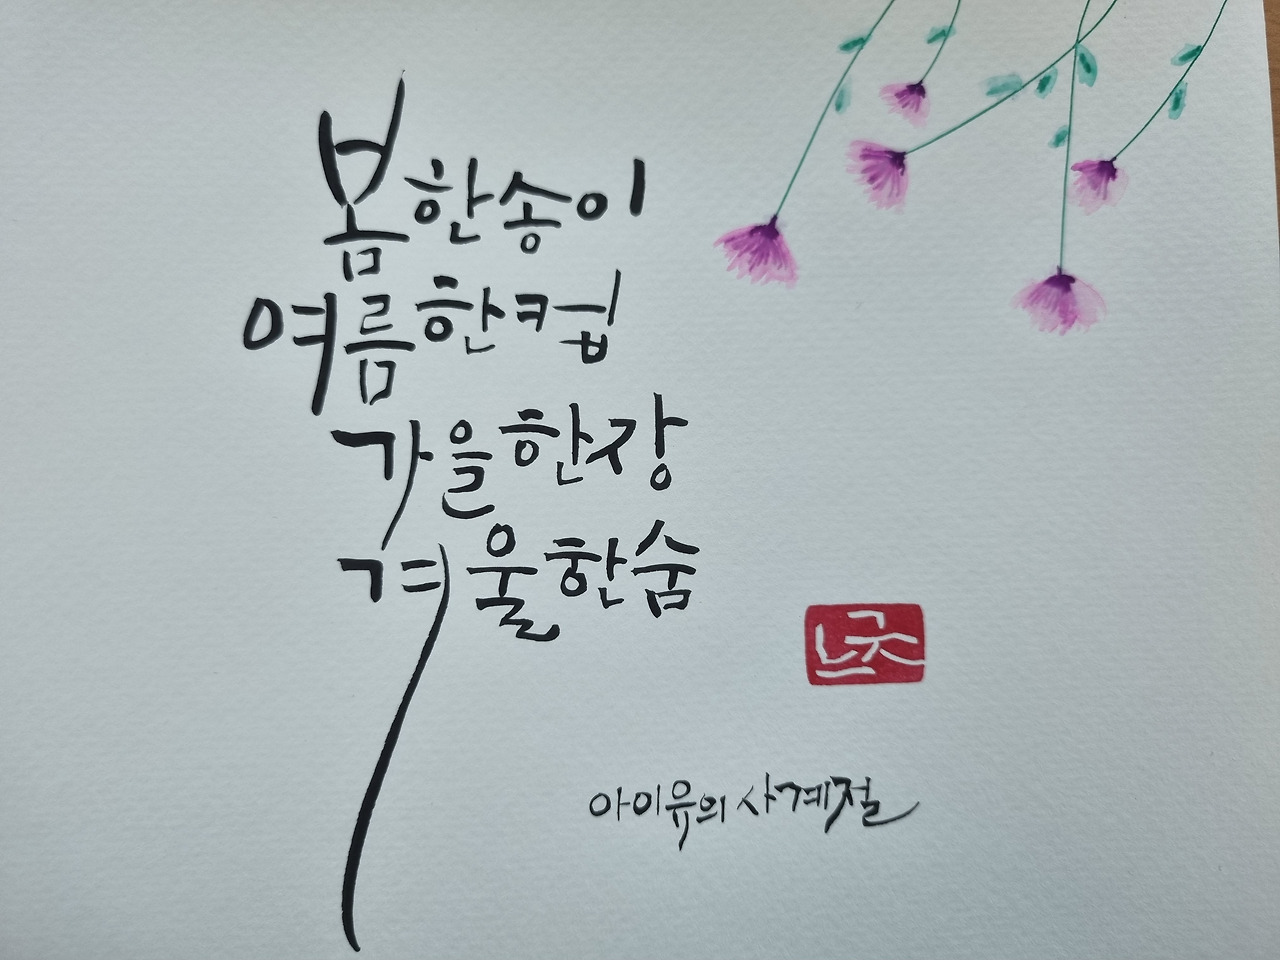 봄한송이
여름한컵
가을한장
겨울한숨
아이유의 사계절